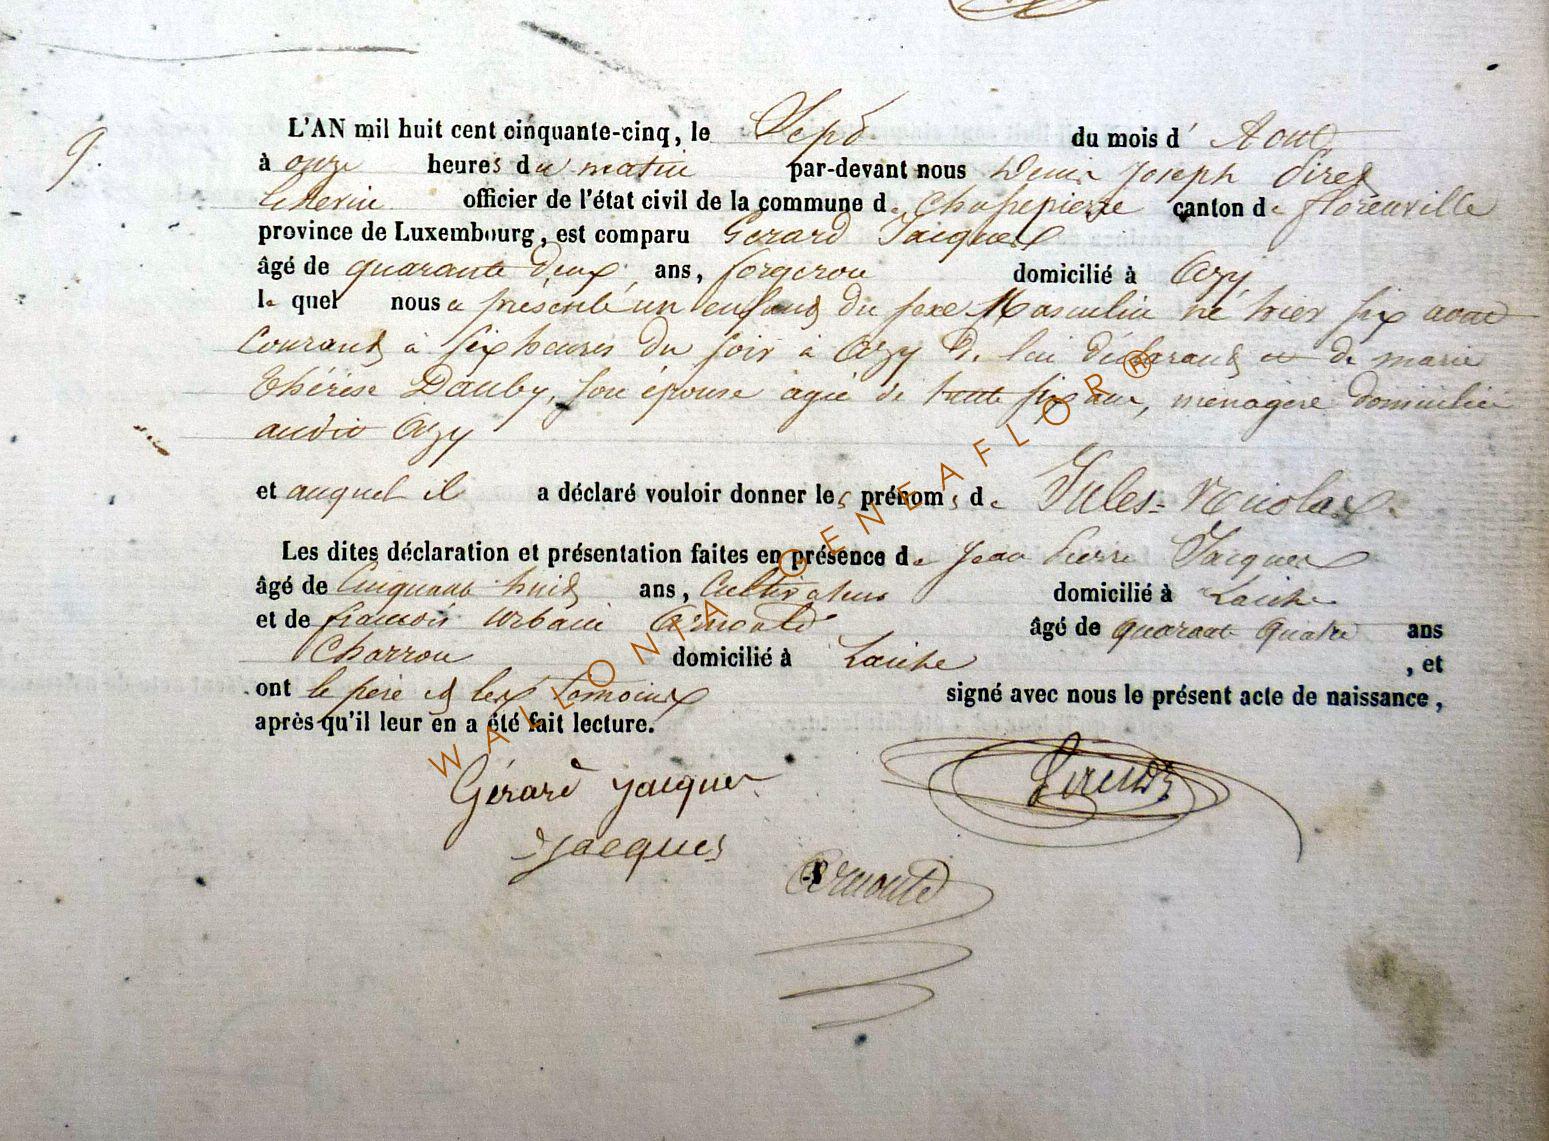 9.
L'AN mil huit cent cinquante-cinq, le Sept du mois d' Aout
à onze heures du matin par-devant nous Denis Joseph
officier de l'état civil de la commune de Chassepierre canton de florenville
province de Luxembourg, est comparu Gerard Jacques
âgé de quarante deux ans, forgeron domicilié à Azy
le quel nous a présenté un enfant du sexe Masculin né hier six aout
Courant à six heures du soir à Azy de lui déclarant et de marie
Thérèse Dauby, son épouse agée de trente six ans, ménagère domiciliée
audit Azy
et auquel il a déclaré vouloir donner les prénoms de Jules-Nicolas.
Les dites déclaration et présentation faites en présence de Jean Pierre Jacques
âgé de Cinquante huit ans, Cultivateur domicilié à Laiche
et de françois Urbain Arnould âgé de quarante quatre ans
Charron domicilié à Laiche , et
ont le père et les temoins signé avec nous le présent acte de naissance,
après qu'il leur en a été fait lecture.
Gérard Jacques
Jacques
Arnould
WALLONIA GENEAFLOR®